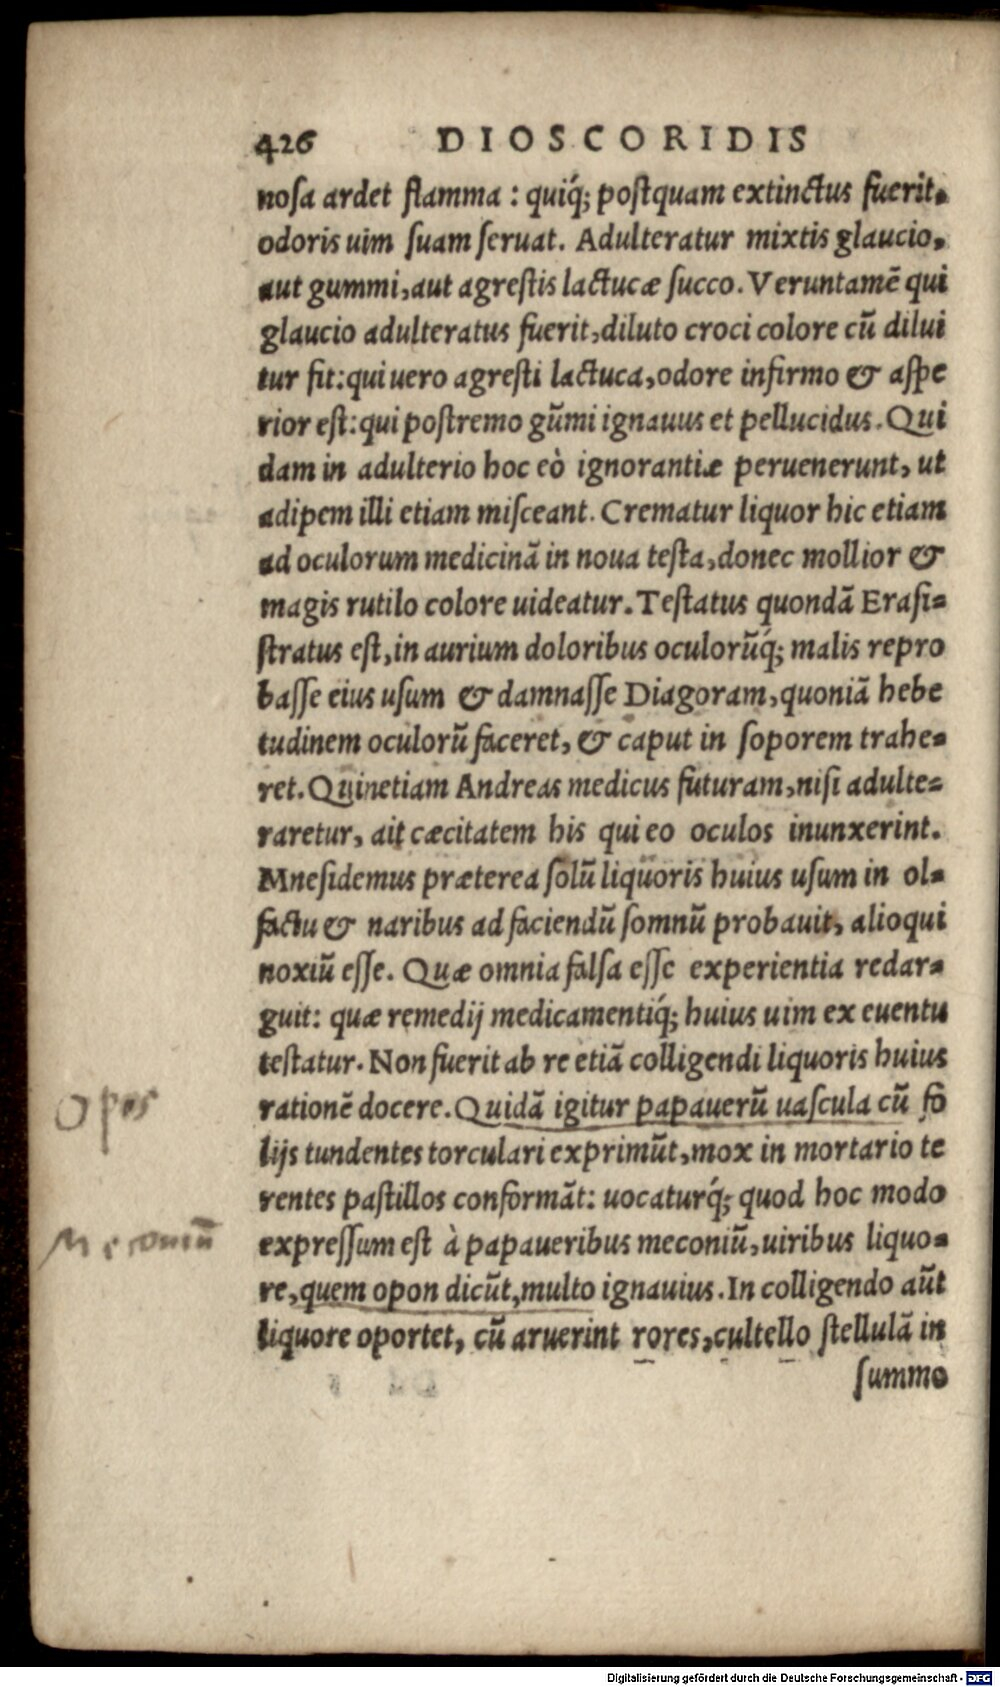 426 DIOSCORIDIS
noſa ardet flamma : quiq́; poſtquam extinctus fuerit,
odoris uim ſuam ſeruat. Adulteratur mixtis glaucio,
aut gummi, aut agreſtis lactucæ ſucco. Veruntamē qui
glaucio adulteratus fuerit, diluto croci colore cū dilui
tur fit: qui uero agreſti lactuca, odore infirmo & aſpe
rior eſt: qui poſtremo gūmi ignauus et pellucidus. Qui
dam in adulterio hoc eò ignorantiæ peruenerunt, ut
adipem illi etiam miſceant. Crematur liquor hic etiam
ad oculorum medicinā in noua teſta, donec mollior &
magis rutilo colore uideatur. Teſtatus quondā Eraſi-
ſtratus eſt, in aurium doloribus oculorūq́; malis repro
baſſe eius uſum & damnaſſe Diagoram, quoniā hebe
tudinem oculorū faceret, & caput in ſoporem trahe-
ret. Quinetiam Andreas medicus futuram, niſi adulte-
raretur, ait cæcitatem his qui eo oculos inunxerint.
Mneſidemus præterea ſolū liquoris huius uſum in ol-
factu & naribus ad faciendū ſomnū probauit, alioqui
noxiū eſſe. Quæ omnia falſa eſſe experientia redar-
guit: quæ remedij medicamentiq́; huius uim ex euentu
teſtatur. Non fuerit ab re etiā colligendi liquoris huius
rationē docere. Quidā igitur papauerū uaſcula cū fo
lijs tundentes torculari exprimūt, mox in mortario te
rentes paſtillos conformāt: uocaturq́; quod hoc modo
expreſſum eſt à papaueribus meconiū, uiribus liquo-
re, quem opon dicūt, multo ignauius. In colligendo aūt
liquore oportet, cū aruerint rores, cultello ſtellulā in
ſummo
Opos
Meconiū
Digitalisierung gefördert durch die Deutsche Forschungsgemeinschaft - DFG